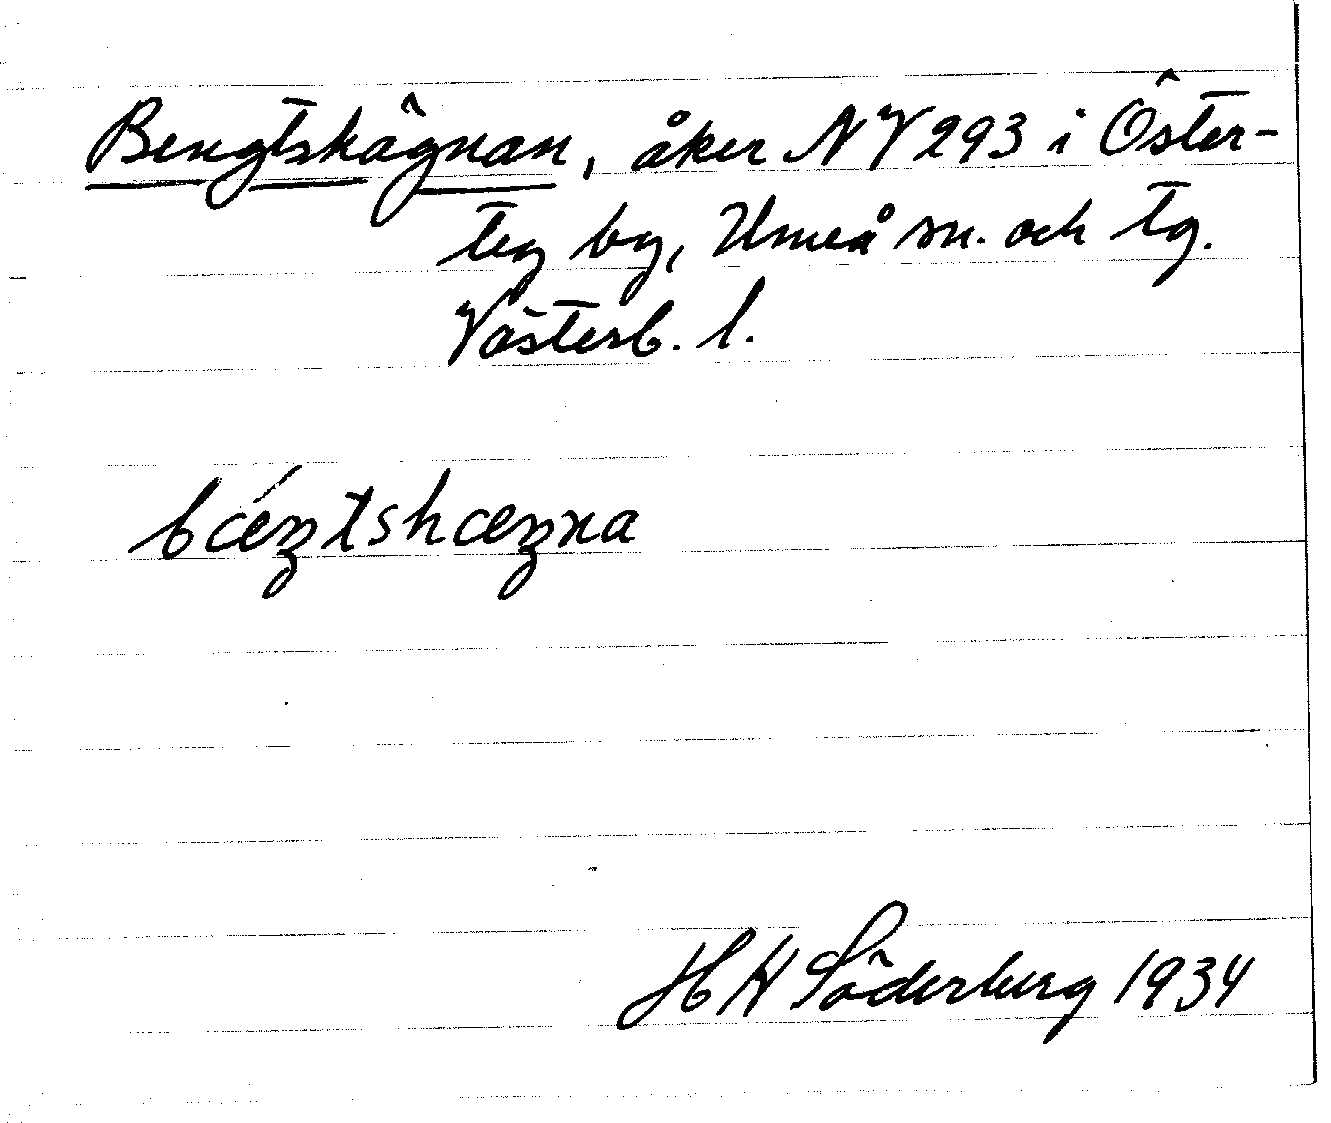 Bengtskägnan, åker NV293 i Öster-
teg by, Umeå sn. och tg.
Västerb. l.
H H Söderberg 1934